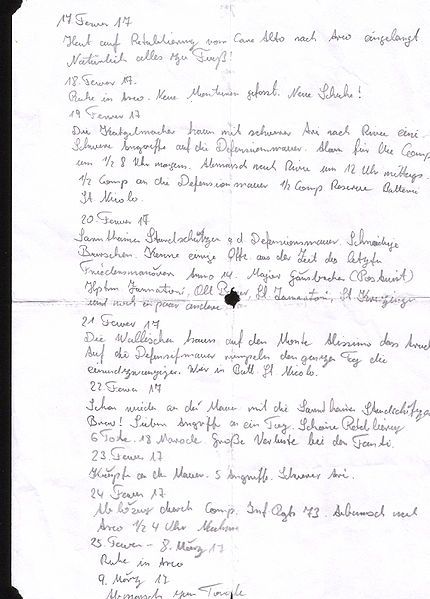 17 Feber 17
Heut auf Retablierung von Cane Alto nach Arco eingelangt
Natürlich alles zu Fuß!
18. Feber 17.
Ruhe in Arco. Neue Monturen gefasst. Neue Schuhe!
19 Feber 17
Die Katzelmacher hauen mit schwerer Ari nach Riva eini.
Schwere Angriffe auf die Defensionsmauer. Alarm für die Comp
um ½ 8 Uhr morgens. Abmarsch nach Riva um 12 Uhr mittags.
½ Comp an die Defensionsmauer ½ Comp Reserve Batterie
St. Nicolo.
20 Feber 17
Sarnthainer Standschützen a d Defensionsmauer. Schneidige
Burschen. Kenne einige Offz. aus der Zeit des letzten
Friedensmanövers Anno 14. Major
Hptm
und noch ein paar andere
21 Feber 17
Die Wallischen hauen auf den Monte Altissimo das
Auf die Defensmauer rumpeln den ganzen Tag die
einundzwanziger. War in Batt St Nicolo.
22 Feber 17
Schon wieder an der Mauer mit die Sarnthainer Standschützen
Bravo! Sieben Angriffe an ein Tag. Schöne Retablierung
6 Tote. 18 Marode. Große Verluste bei den Fanti.
23 Feber 17
Kämpfe an der Mauer. 5 Angriffe. Schwerer Ari.
24 Feber 17
Ablösung durch Comp. Inf Rgts 73. Abmarsch nach
Arco ½ 4 Uhr
25. Feber - 8. März 17
Ruhe in Arco
9. März 17
Abmarsch zum Tonale